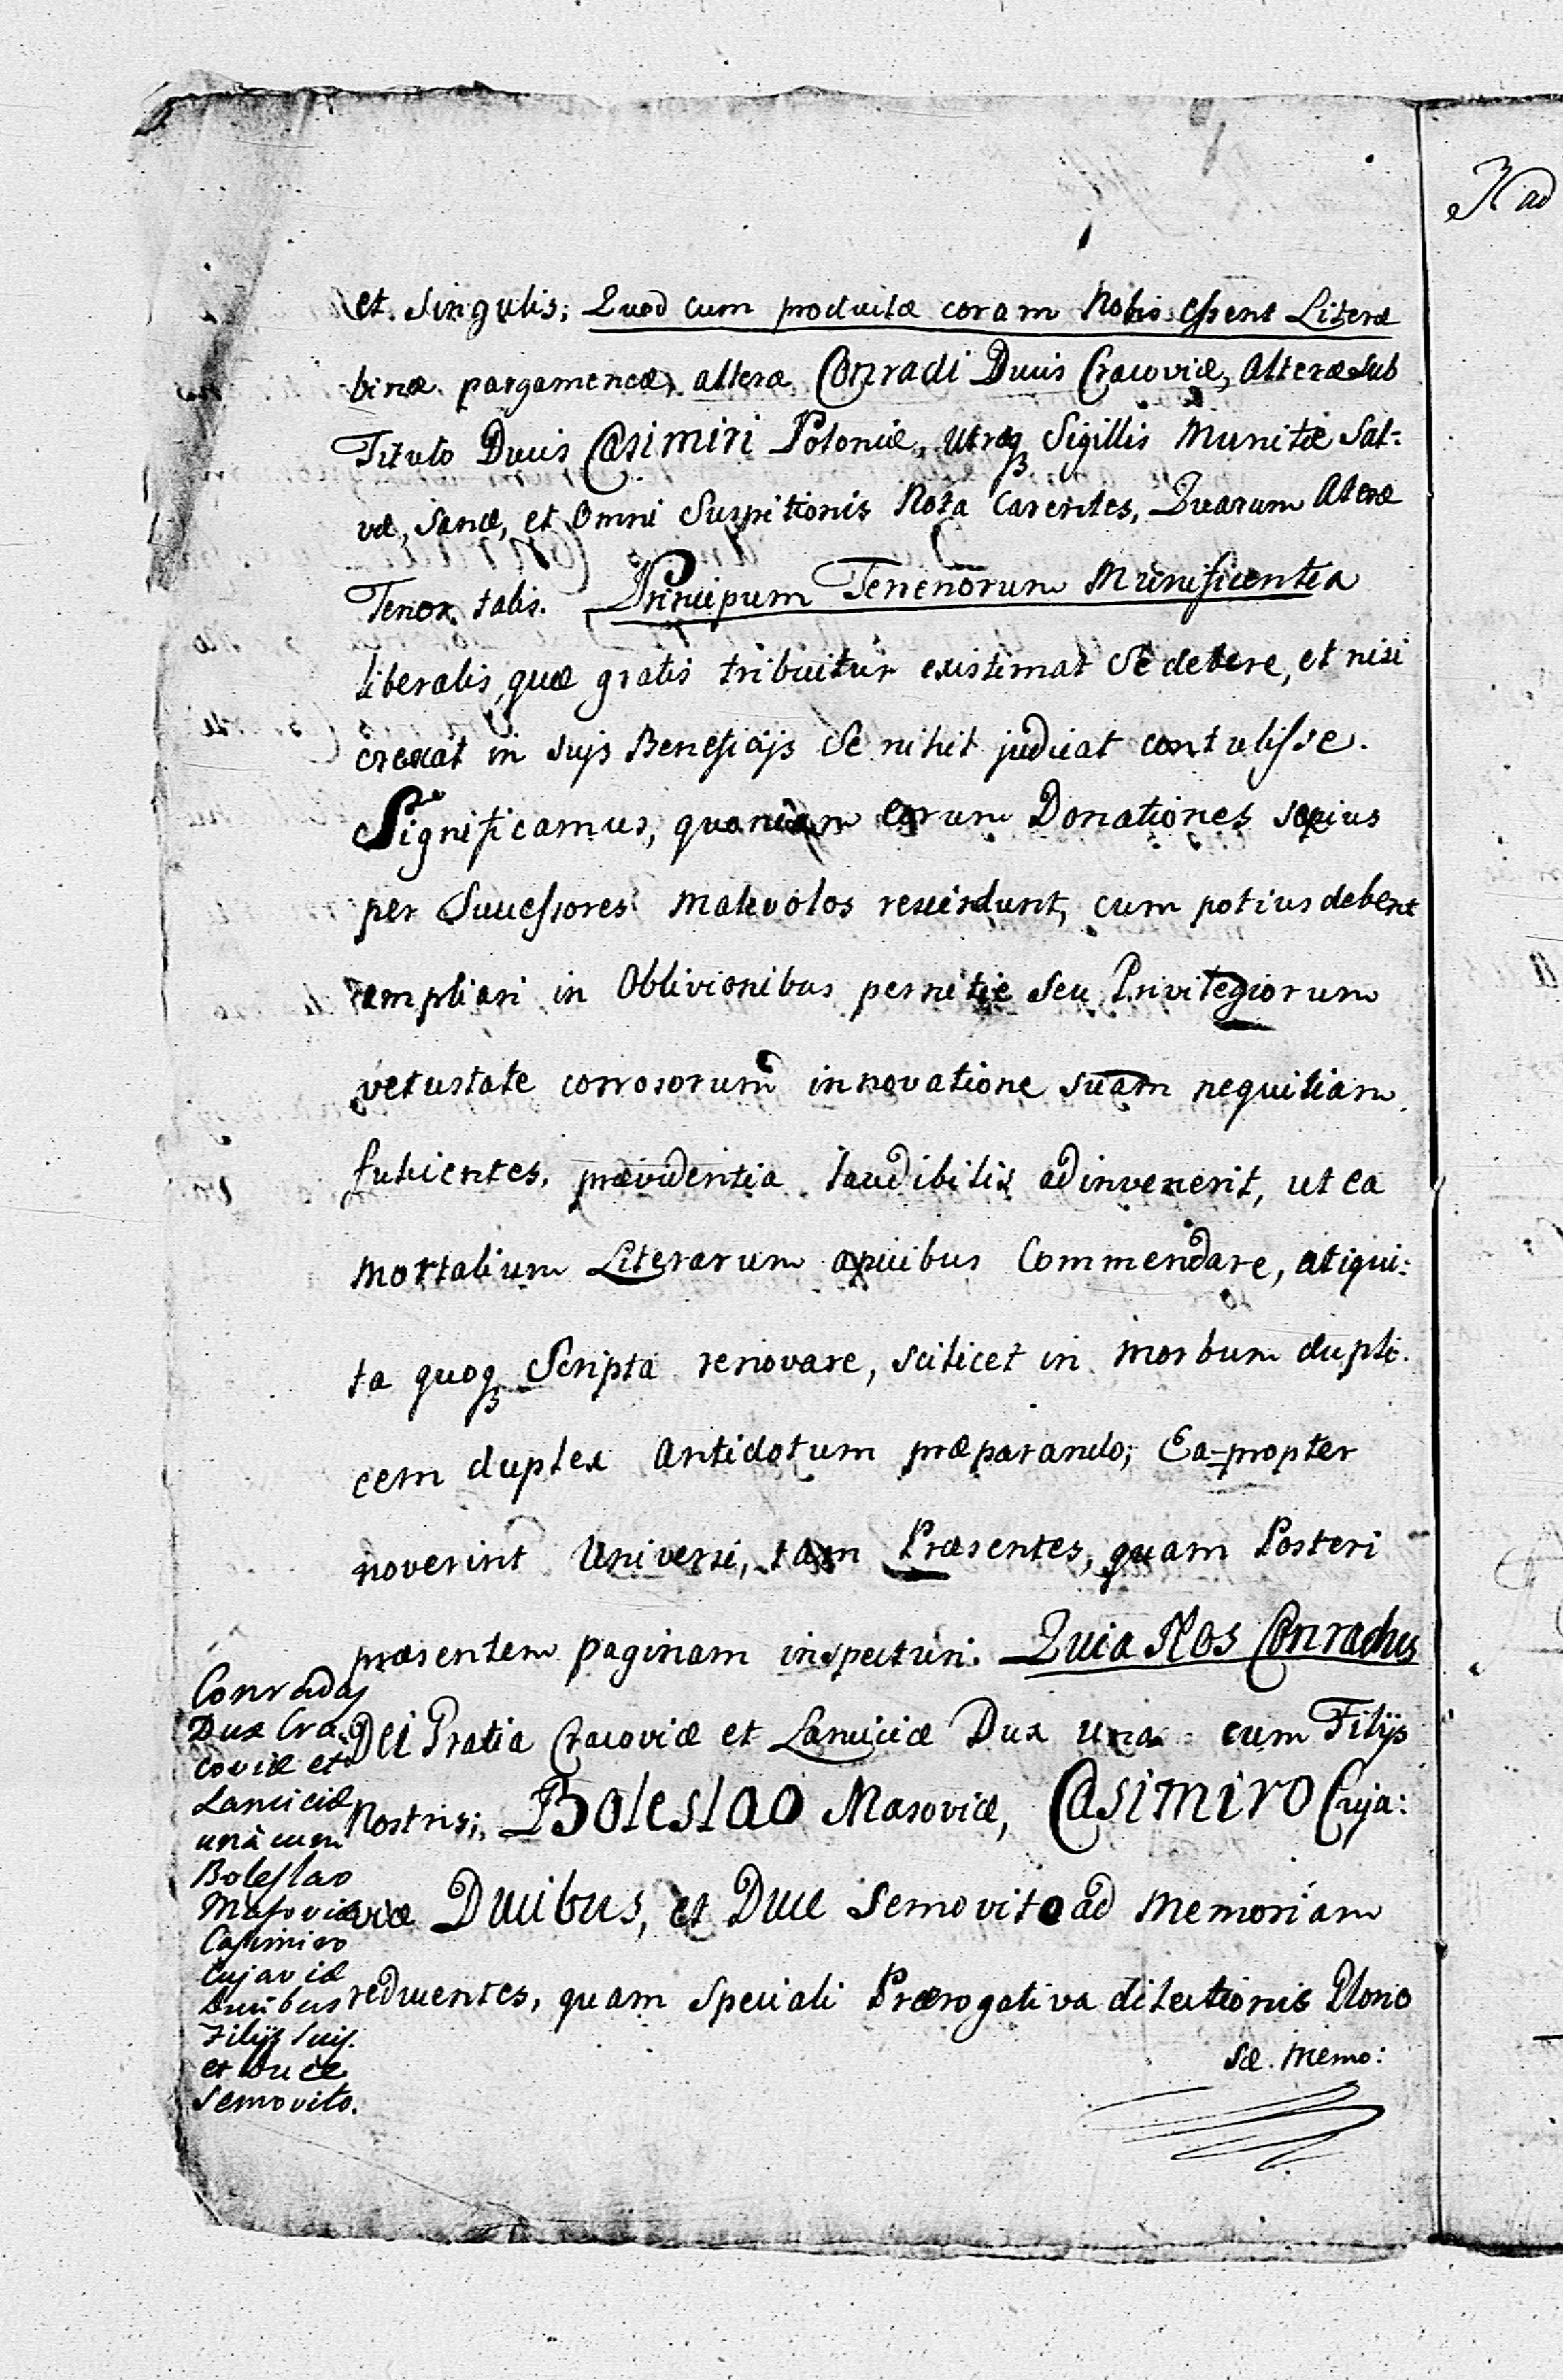 et Singulis; Quod cum productæ coram Nobis essent Literæ
binæ pargameneæ, alteræ Conradi Ducis Cracoviæ, Alteræ sub
Titulo Ducis Casimiri Poloniæ, utræq Sigillis Munitæ Sal-
væ, Sanæ, et Omni Suspitionis Nota Carentes, Quarum Ateræ
Tenor talis. Principum Terrenorum Munificentia
liberalis, quæ gratis tribuitur existimat Se debere, et nisi
crexat in suis Beneficijs Se nihil judicat contulisse.
Significamus, quoniam eorum Donationes sæpius
per Successores Malevolos rescindunt, cum potius debent
ampliari in Oblivionibus pernitie seu Privilegiorum
vetustate corrosorum innovatione suam nequitiam
fulcientes, prævidentia laudibilis adinvenerit, ut ea
mortalium Literarum apicibus Commendare, atiqui:
ta quoq Scripta renovare, scilicet in morbum dupli:
cem duplex Antidotum præparando; Ea-propter
noverint Universi, tam Præsentes, quam Posteri
præsentem paginam inspecturi. Quia Nos Conradus
Dei Gratia Cracoviæ et Lanciciæ Dux una cum Filijs
Nostris; Boleslao Masoviæ, Casimiro Cuja:
viæ Ducibus, et Duce Semovito ad Memoriam
reducentes, quam Speciali Prærogativa dilectionis Glorio
sæ. Memo:
Conradus
Dux Cra
coviæ et
Lanciciæ
unà cum
Boleslao
Masoviæ
Casimiro
Cujaviæ
Ducibus
Filijs suis.
et Duce
Semovito.
ad